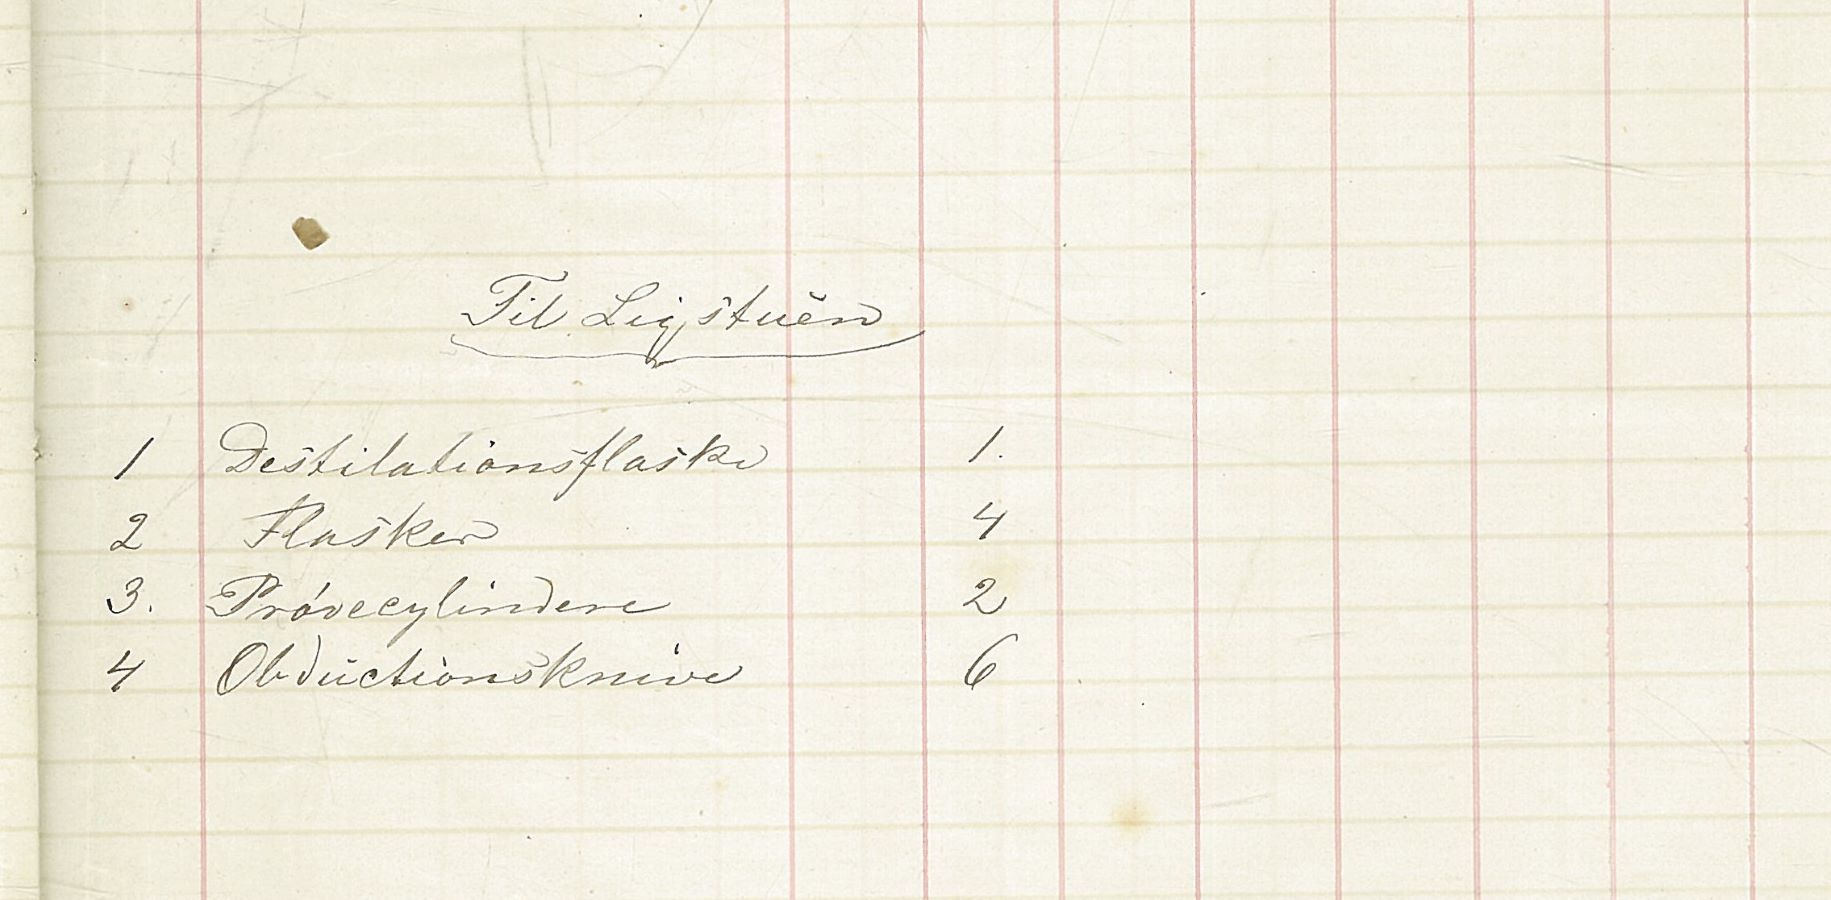 Til Ligstuen
1 Destilationsflaske 1.
2 Flasker 4
3. Prøvecylindere 2
4 Obductionsknive 6